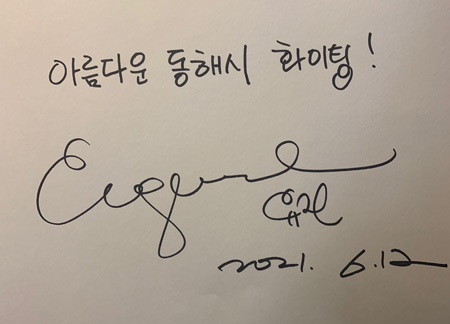 아름다운 동해시 화이팅!
Eugene
유진
2021. 6.12